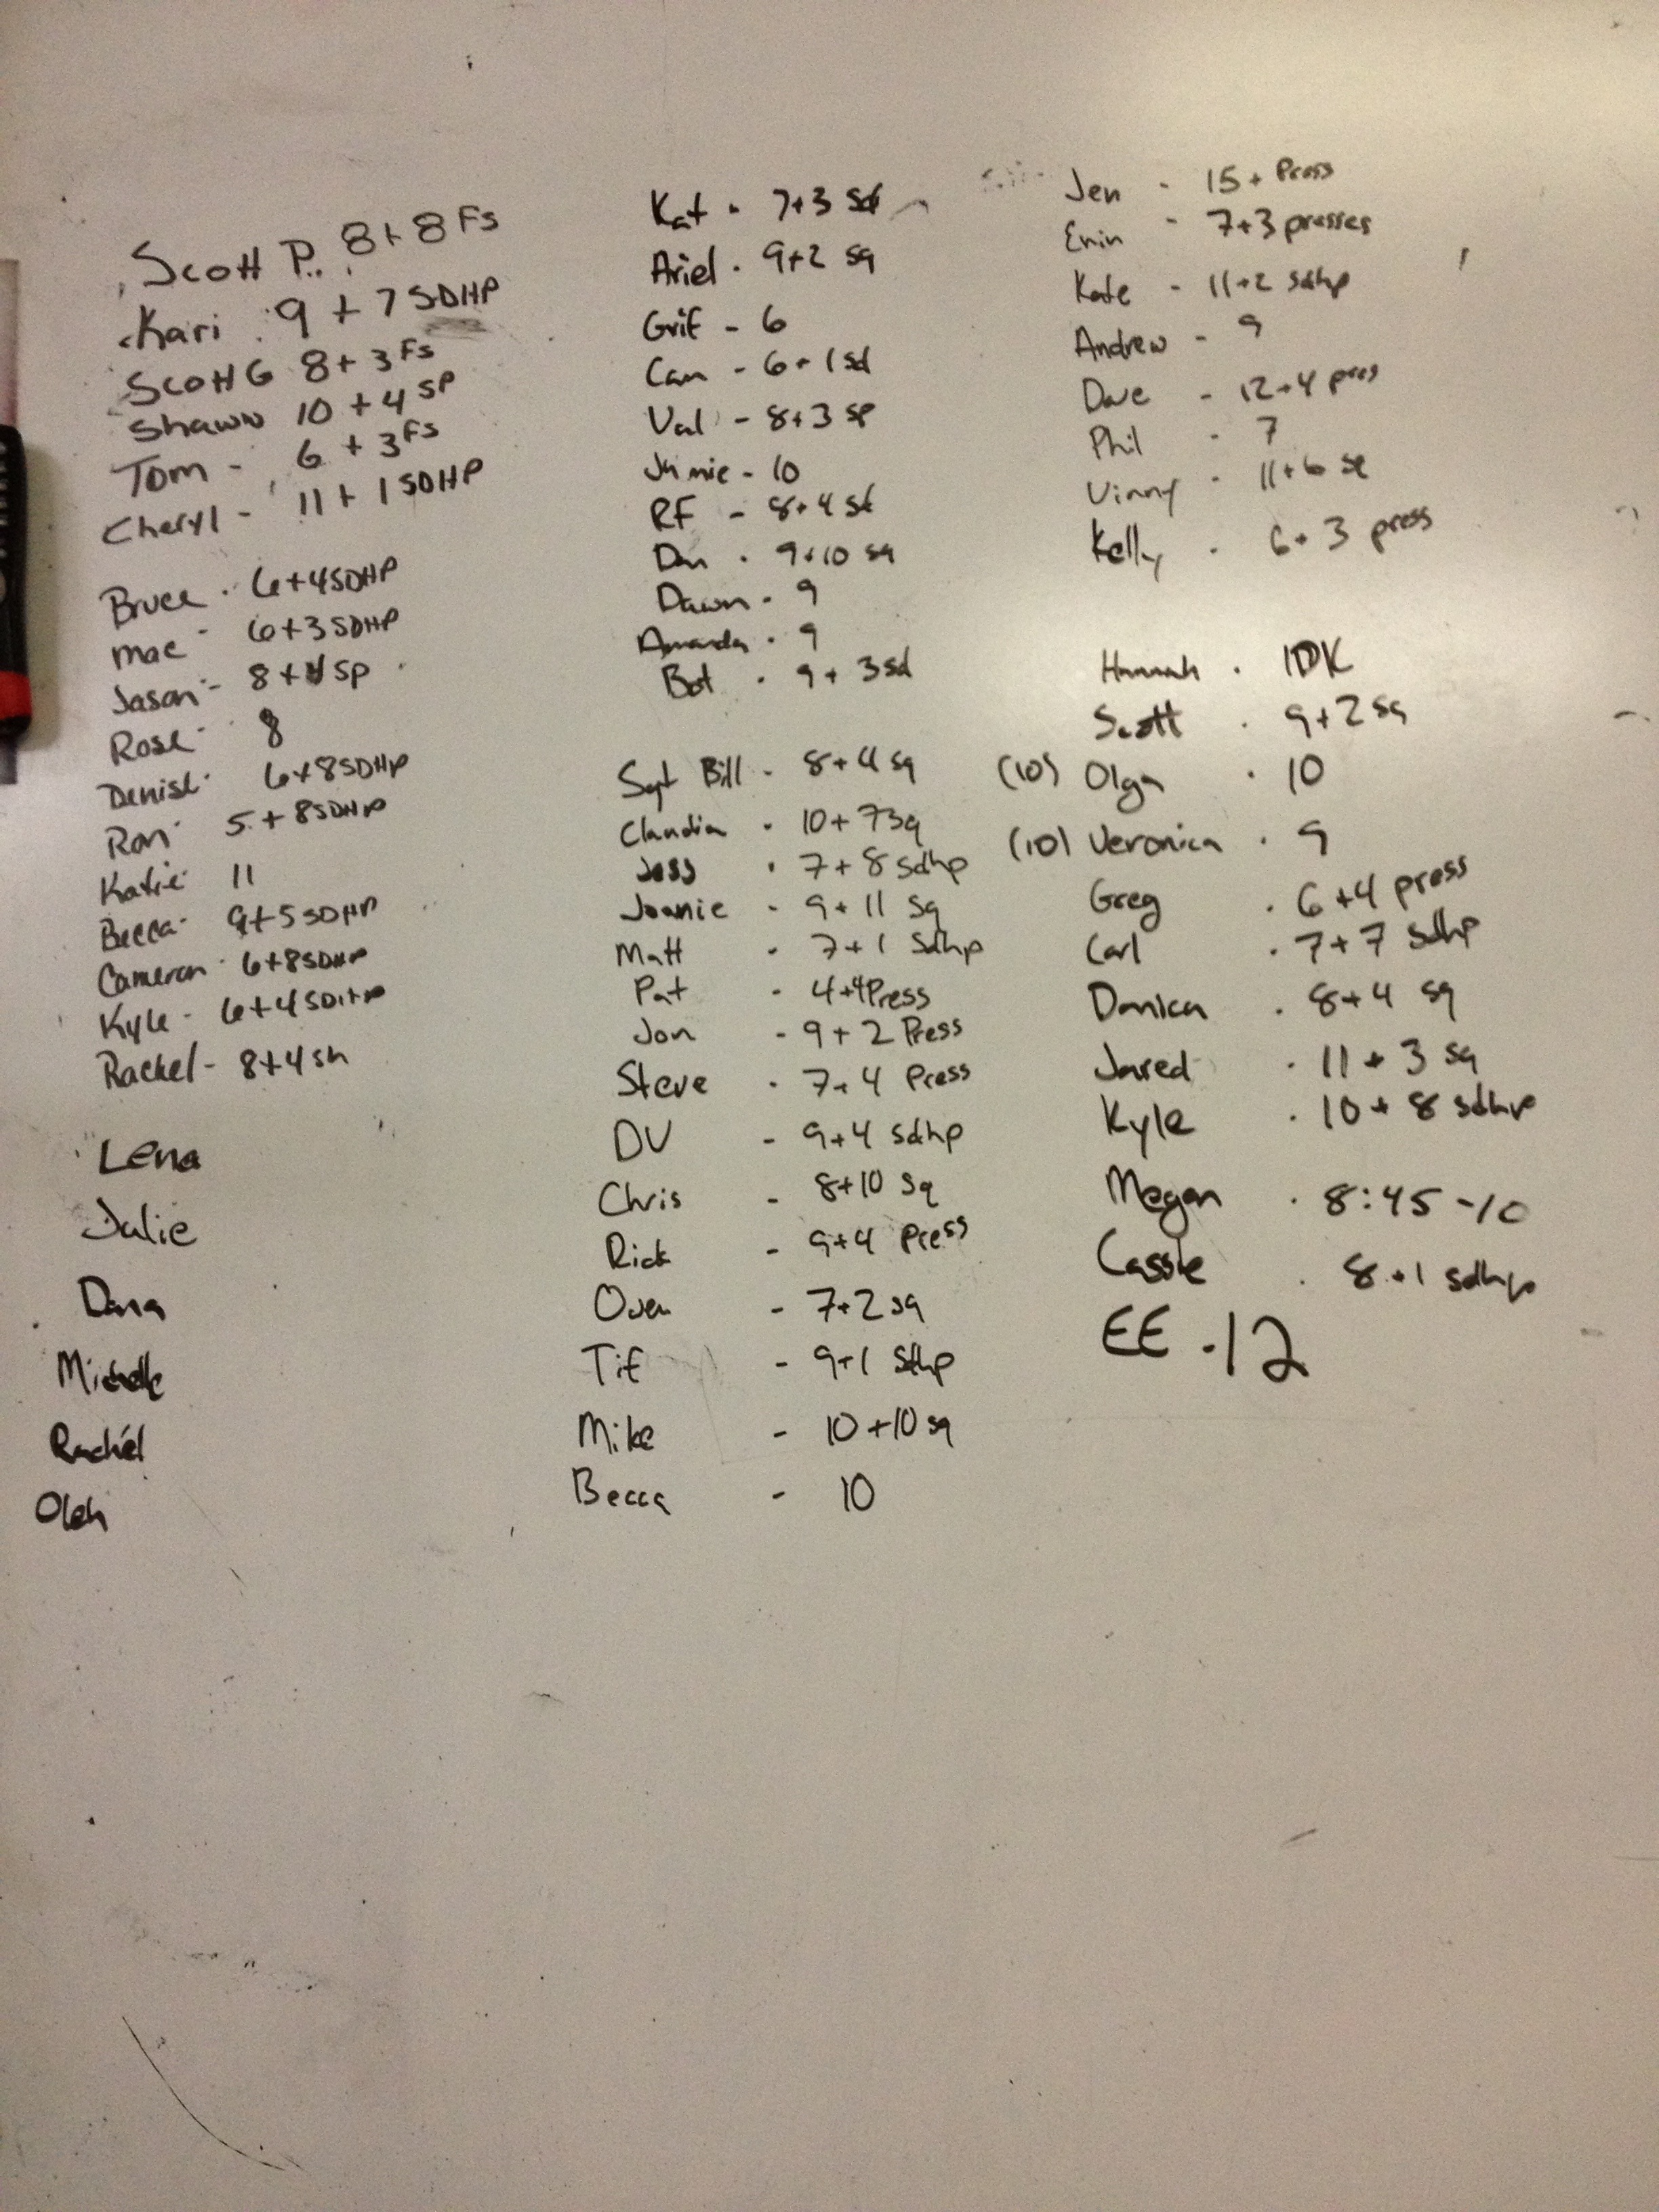 Scott P. 8+8 FS
Kari 9 + 7 SDHP
Scott G 8+3 FS
Shawn 10 + 4 SP
Tom - 6 + 3 FS
Cheryl - 11 + 1 SDHP
Bruce - 6+4 SDHP
Mae - 6+3 SDHP
Jason - 8 + 4 SP
Rose - 8
Denise - 6+8 SDHP
Ron - 5 + 8 SDHP
Katie - 11
Becca - 9+5 SDHP
Cameron - 6+8 SDHP
Kyle - 6+4 SDHP
Rachel - 8+4
Lena
Julie
Dana
Michelle
Rachel
Oleh
Kat - 7+3 Sd
Ariel - 9+2 sq
Grif - 6
Cam - 6+1 sd
Val - 8+3 sp
Jamie - 10
RF - 8+4
Dan - 9+10 sq
Dawn - 9
Amanda - 9
Bot - 9 + 3 sd
Sgt Bill - 8+4 sq
Claudia - 10+ sq
Jess - 7+8 sdhp
Joanie - 9+11 sq
Matt - 7+1 sdhp
Pat - 4+4 Press
Jon - 9+2 Press
Steve - 7+4 Press
DV - 9+4 sdhp
Chris - 8+10 sq
Rick - 9+4 press
Owen - 7+2 sq
Tif - 9+1 Sdhp
Mike - 10+10 sq
Becca - 10
Jen - 15+ Press
Erin - 7+3 presses
Kate - 11+2 sdhp
Andrew - 9
Dave - 12+4 press
Phil - 7
Vinny - 11+6
Kelly - 6+3 press
Hannah - IDK
Scott - 9+2 sq
(10) Olga - 10
(10) Veronica - 9
Greg - 6+4 press
Carl - 7+7 sdhp
Danica - 8+4 sq
Jared - 11+3 sq
Kyle - 10+8 sdhp
Megan - 8:45 - 10
Cassie - 8+1 sdhp
EE - 12